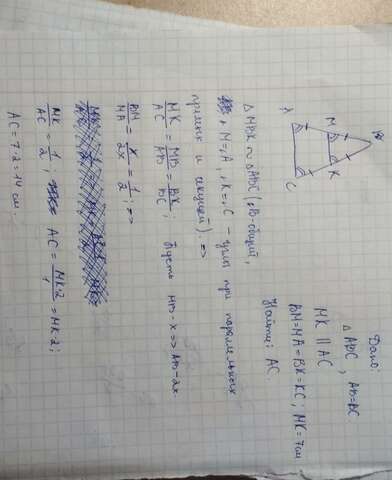 Дано:
△ ABC, AB=BC
MK || AC
BM=MA=BK=KC; MK=7см
Найти: AC.
B
M
K
A
C
△ MBK ~ △ABC (∠B-общий,
∠M=∠A, ∠K=∠C - углы при параллельных
прямых и секущей). =>
MK/AC = MB/AB = BK/BC; Пусть MB-x => AB-2x
BM/MA = x/2x = 1/2; =>
MK/AC = 1/2; AC = MK·2/1 = MK·2;
AC = 7·2 = 14 см